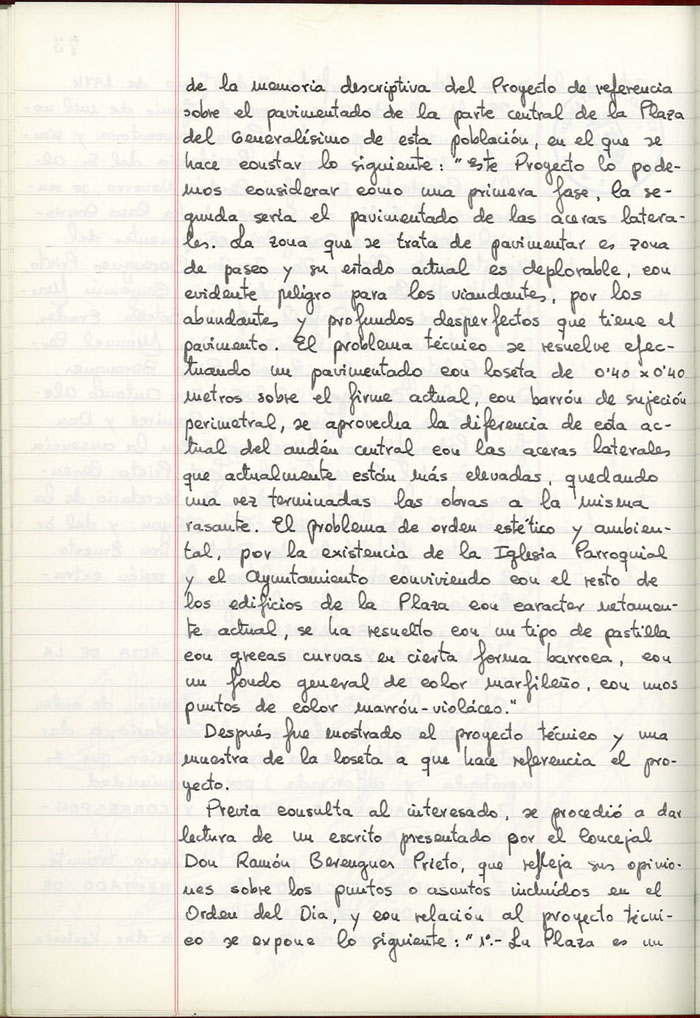 de la memoria descriptiva del Proyecto de referencia
sobre el pavimentado de la parte central de la Plaza
del Generalísimo de esta población, en el que se
hace constar lo siguiente: "Este Proyecto lo pode-
mos considerar como una primera fase, la se-
gunda seria el pavimentado de las aceras latera-
les. La zona que se trata de pavimentar es zona
de paseo y su estado actual es deplorable, con
evidente peligro para los viandantes, por los
abundantes y profundos desperfectos que tiene el
pavimento. El problema técnico se resuelve efec-
tuando un pavimentado con loseta de 0'40 x 0'40
metros sobre el firme actual, con barrón de sujeción
perimetral, se aprovecha la diferencia de cota ac-
tual del andén central con las aceras laterales
que actualmente están más elevadas, quedando
una vez terminadas las obras a la misma
rasante. El problema de orden estético y ambien-
tal, por la existencia de la Iglesia Parroquial
y el Ayuntamiento conviviendo con el resto de
los edificios de la Plaza con caracter netamen-
te actual, se ha resuelto con un tipo de pastilla
con grecas curvas en cierta forma barroca, con
un fondo general de color marfileño, con unos
puntos de color marrón-violáceo."
Después fue mostrado el proyecto técnico y una
muestra de la loseta a que hace referencia el pro-
yecto.
Previa consulta al interesado, se procedió a dar
lectura de un escrito presentado por el Concejal
Don Ramón Berenguer Prieto, que refleja sus opinio-
nes sobre los puntos o asuntos incluídos en el
Orden del Día, y con relación al proyecto técni-
co se expone lo siguiente: "1º.- La Plaza es un